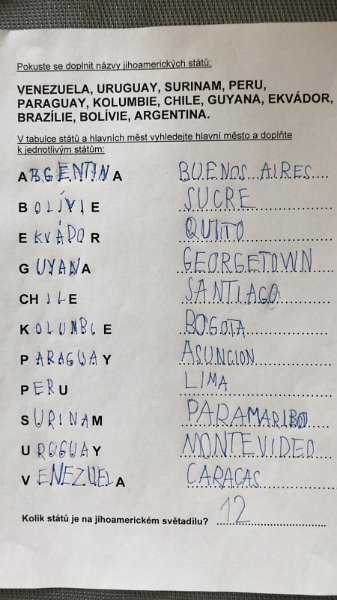 Pokuste se doplnit názvy jihoamerických států:
VENEZUELA, URUGUAY, SURINAM, PERU,
PARAGUAY, KOLUMBIE, CHILE, GUYANA, EKVÁDOR,
BRAZÍLIE, BOLÍVIE, ARGENTINA.
V tabulce států a hlavních měst vyhledejte hlavní město a doplňte
k jednotlivým státům:
ARGENTINA BUENOS AIRES
BOLÍVIE SUCRE
EKVÁDOR QUITO
GUYANA GEORGETOWN
CHILE SANTIAGO
KOLUMBIE BOGOTA
PARAGUAY ASUNCION
PERU LIMA
SURINAM PARAMARIBO
URUGUAY MONTEVIDEO
VENEZUELA CARACAS
Kolik států je na jihoamerickém světadílu? 12